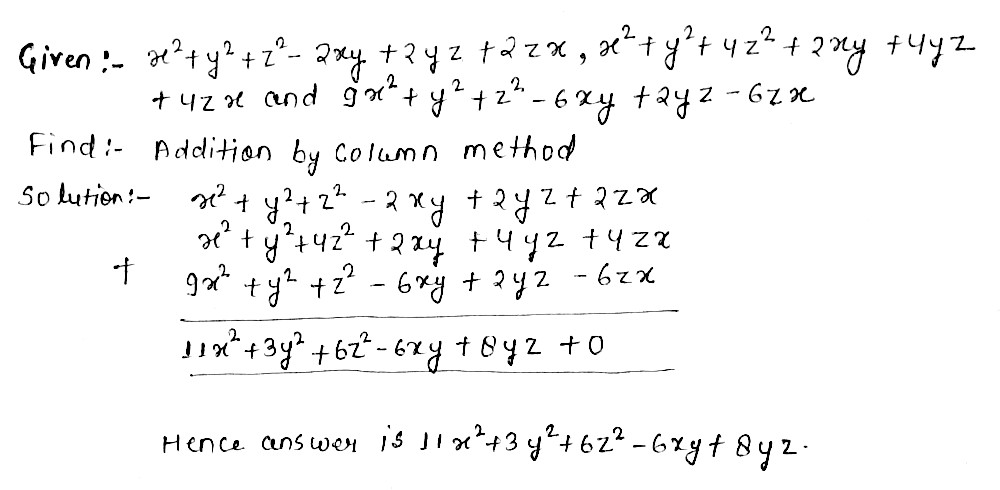 Given :- x² + y² + z² - 2xy + 2yz + 2zx, x² + y² + 4z² + 2xy + 4yz
+ 4zx and 9x² + y² + z² - 6xy + 2yz - 6zx
Find :- Addition by column method
Solution:- x² + y² + z² - 2xy + 2yz + 2zx
x² + y² + 4z² + 2xy + 4yz + 4zx
+ 9x² + y² + z² - 6xy + 2yz - 6zx
11x² + 3y² + 6z² - 6xy + 8yz + 0
Hence answer is 11x² + 3y² + 6z² - 6xy + 8yz.